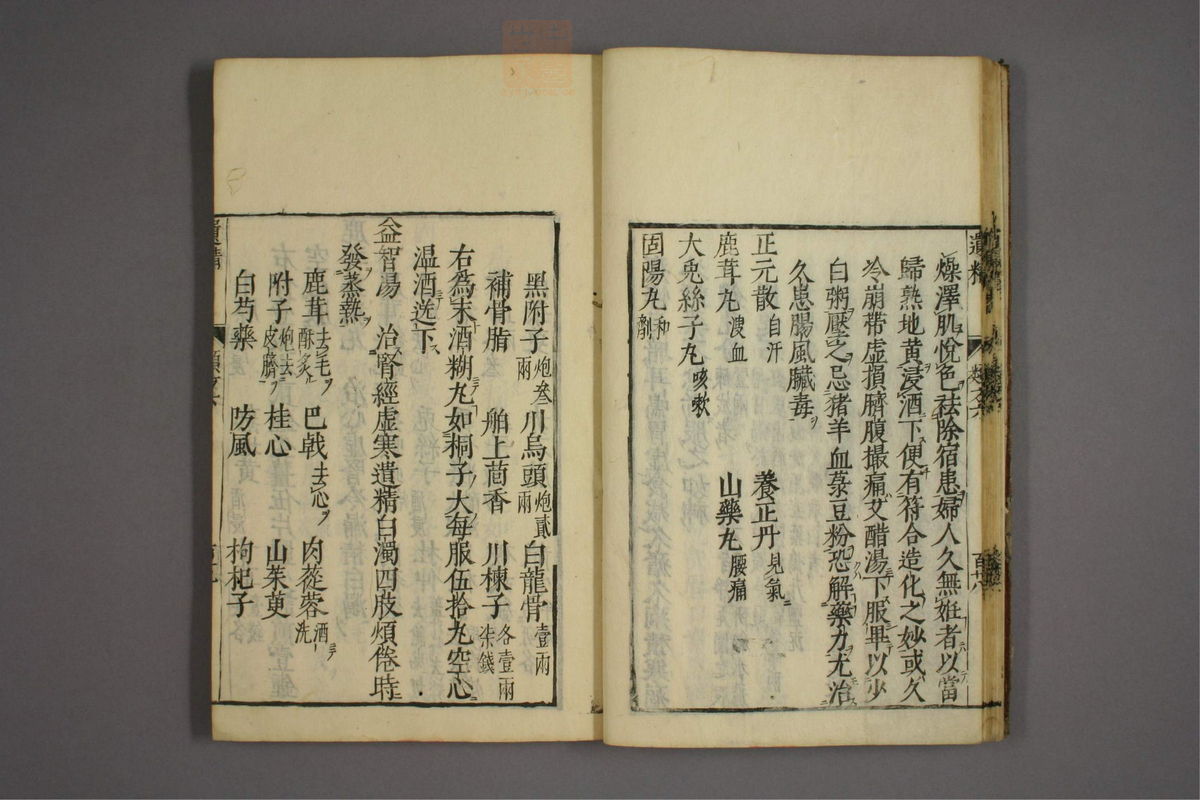 遺精
燥澤肌悅色祛除宿患婦人久無姙者以當
歸熟地黃浸酒下便有符合造化之妙或久
冷崩帶虛損臍腹撮痛艾醋湯下服畢以少
白粥壓之忌猪羊血菉豆粉恐解藥力尤治
久患腸風臟毒
正元散 自汗 養正丹 見氣
鹿茸丸 溲血 山藥丸 腰痛
大兎絲子丸 咳嗽
固陽丸 和劑
黑附子 炮叁兩 川烏頭 炮貳兩 白龍骨 壹兩
補骨脂 舶上茴香 川楝子 各壹兩柒錢
右為末酒糊丸如桐子大每服伍拾丸空心
温酒送下
益智湯 治腎經虛寒遺精白濁四肢煩倦時
發蒸熱
鹿茸 去毛酥炙 巴戟 去心 肉蓯蓉 酒洗
附子 炮去皮臍 桂心 山茱萸
白芍藥 防風 枸杞子